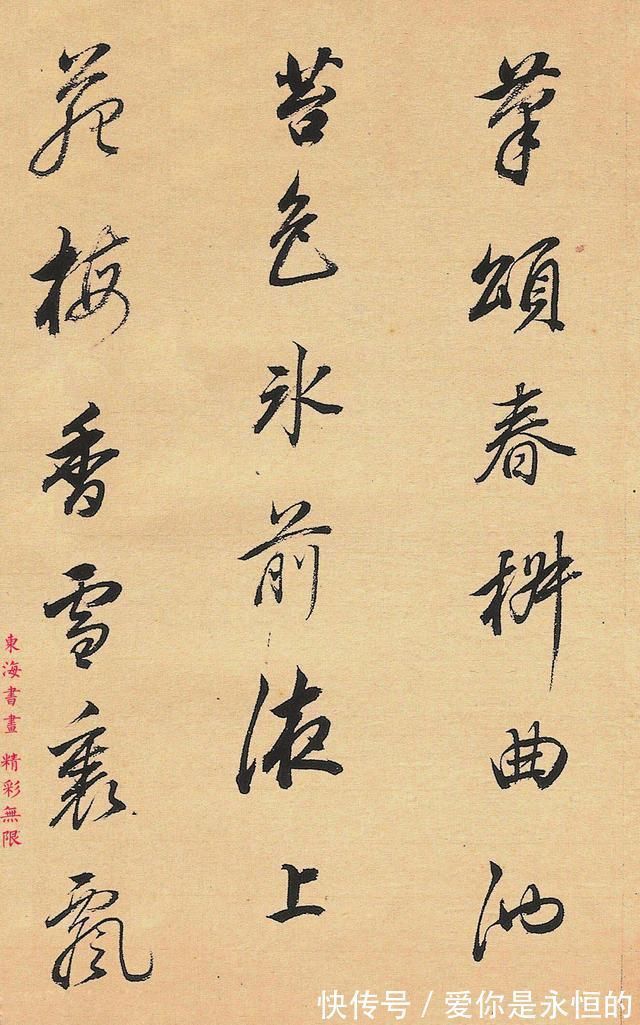 筆頌春椒曲池
苔色氷前液上
苑梅香雪裏飄
東海書畫 精彩無限
快传号 / 爱你是永恒的